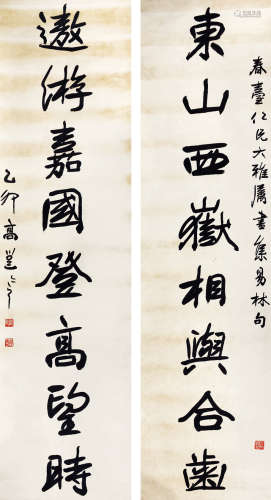 春臺仁兄大雅屬書集易林句
東山西嶽相與合齒
遨游嘉國登高望時
乙卯高邕